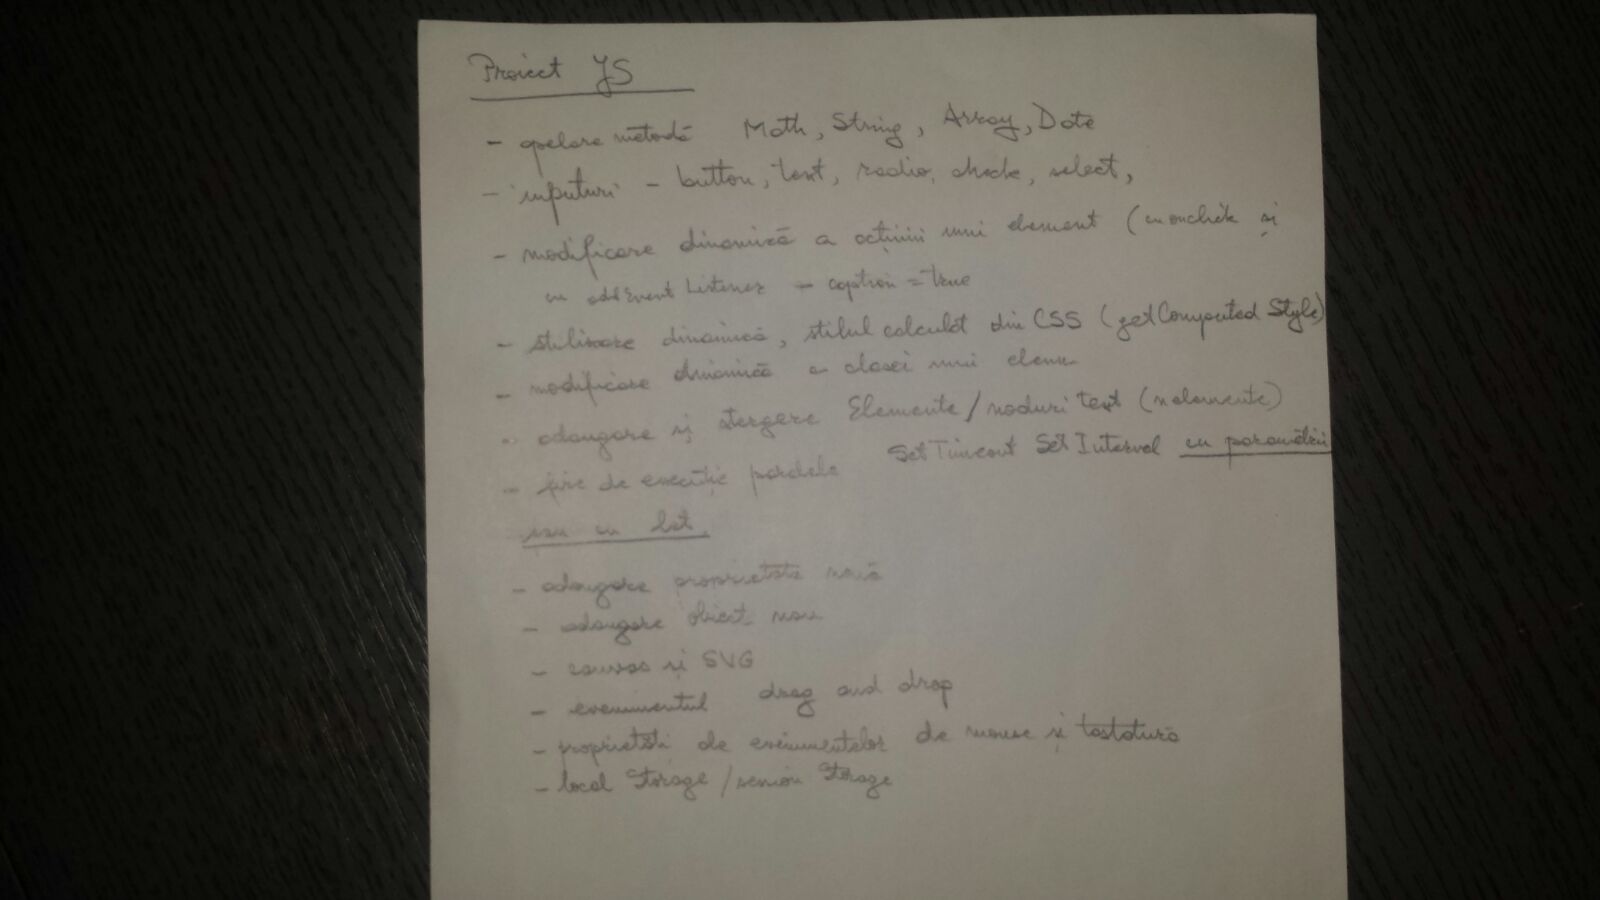 Proiect JS
- apelare metodă Math, String, Array, Date
- inputuri - button, text, radio, check, select,
- modificare dinamică a acțiunii unui element (cu onclick și
cu addEvent Listener - caption = true
- stilizare dinamică, stilul calculat din CSS (getComputed Style)
- modificare dinamică a clasei unui elem
- adaugare și stergere Elemente/noduri text (n elemente)
- fire de execuție paralele SetTimeout SetInterval cu parametrii
sau cu let.
- adaugare proprietate nouă
- adaugare obiect nou
- canvas și SVG
- evenimentul drag and drop
- proprietăți de evenimentelor de mouse și tastatură
- local Storage / session Storage